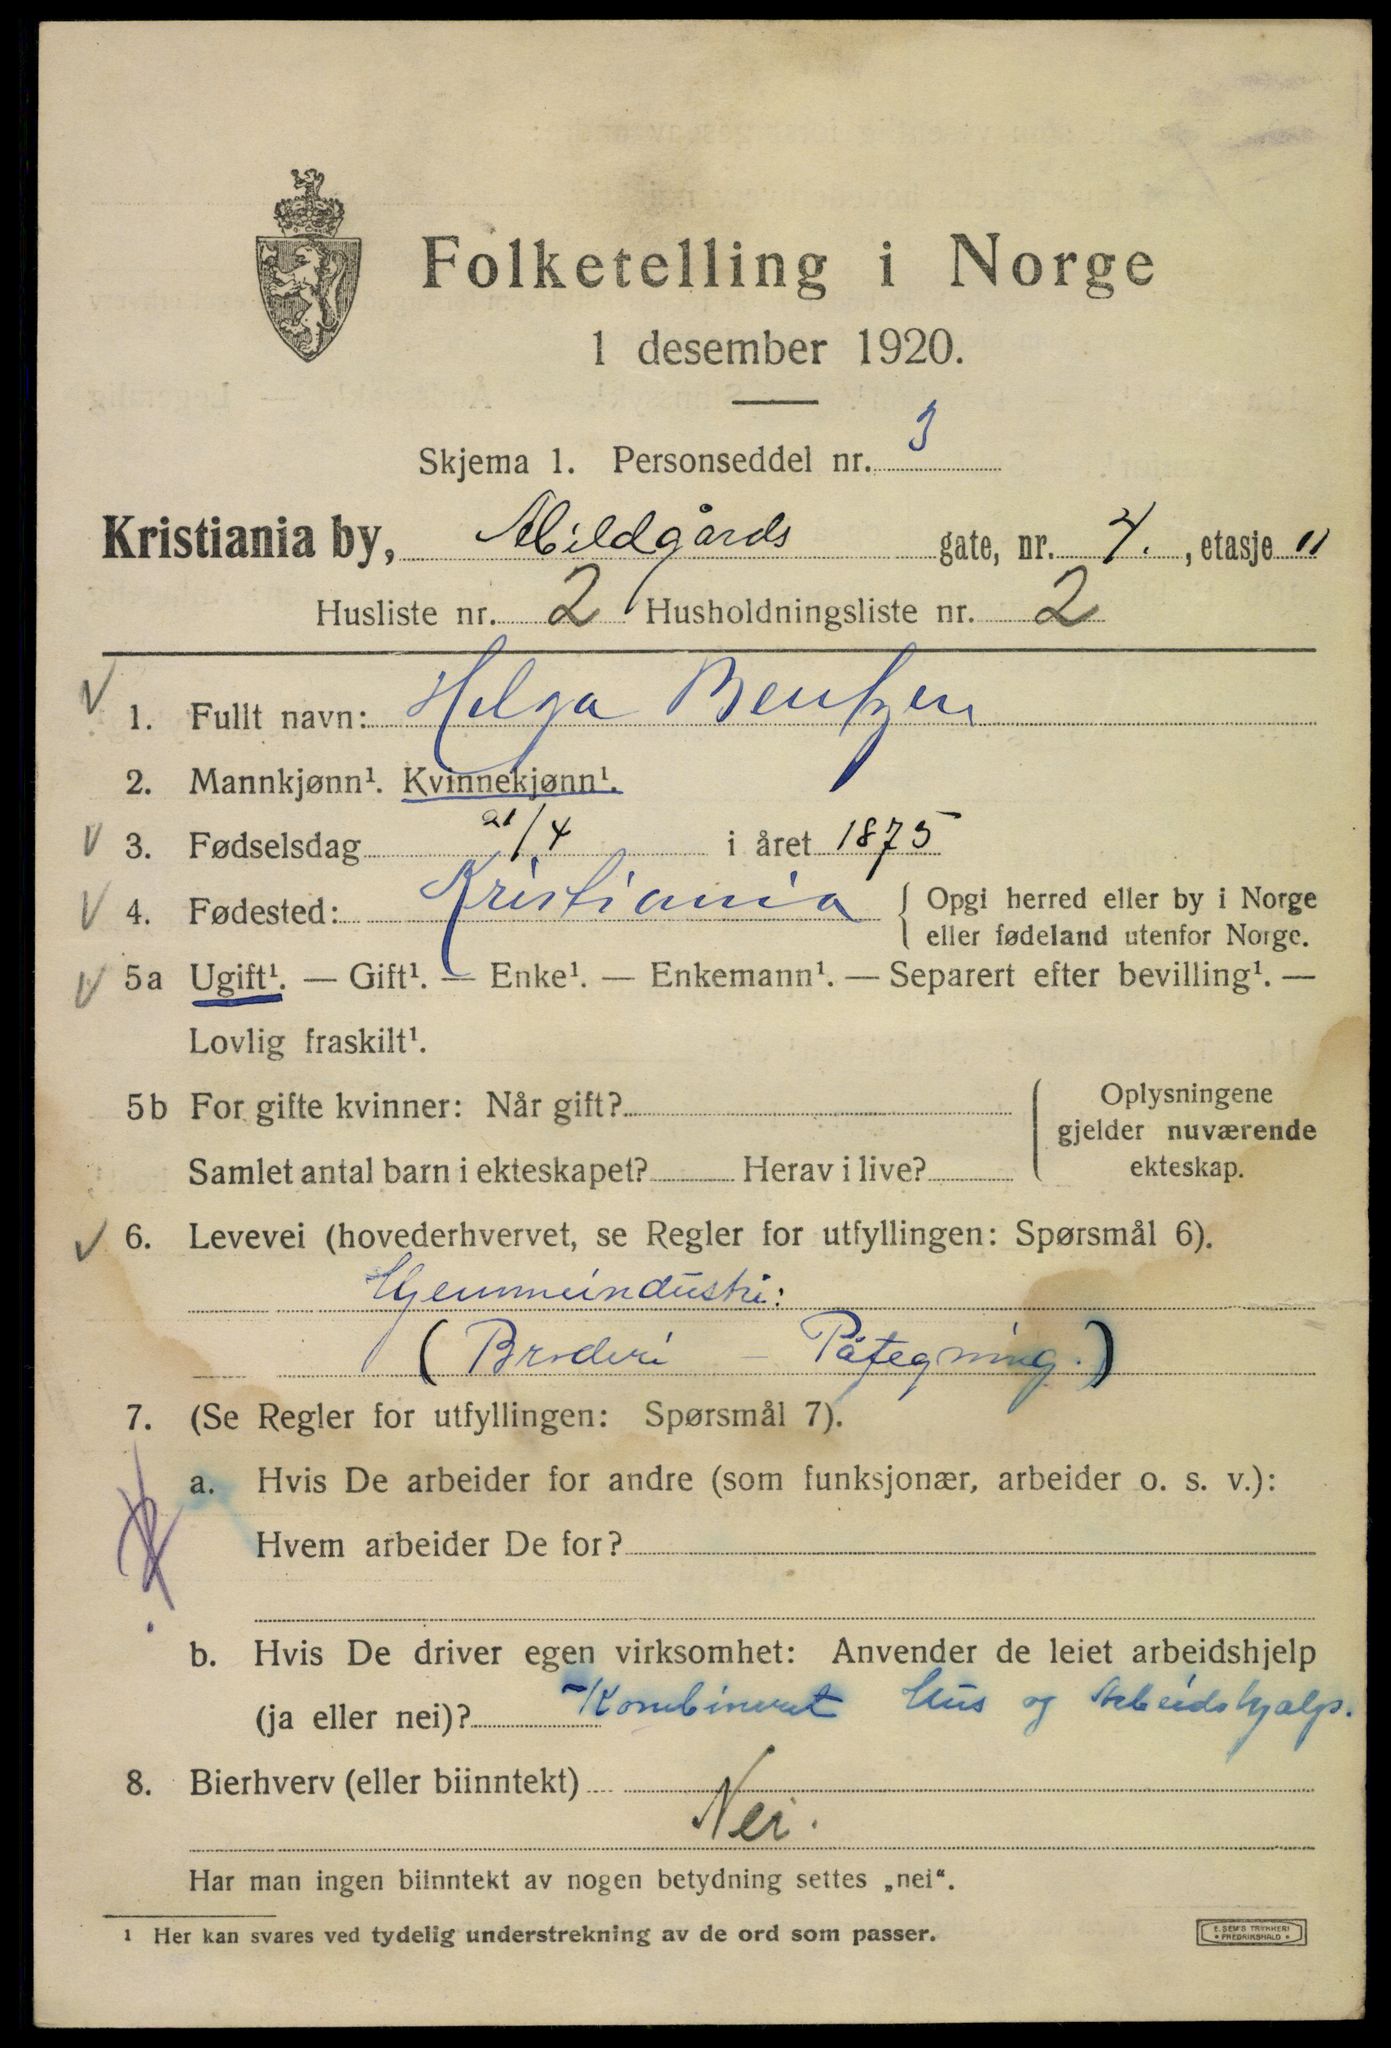 Folketelling i Norge
1 desember 1920.
Skjema 1. Personseddel nr. 3
Kristiania by, Abildgårds gate, nr. 4., etasje II
Husliste nr. 2 Husholdningsliste nr. 2
1. Fullt navn: Helga Bentzen
2. Mannkjønn¹. Kvinnekjønn¹.
3. Fødselsdag 21/4 i året 1875
4. Fødested: Kristiania { Opgi herred eller by i Norge
eller fødeland utenfor Norge.
5a Ugift¹. — Gift¹. — Enke¹. — Enkemann¹. — Separert efter bevilling¹. —
Lovlig fraskilt¹.
5b For gifte kvinner: Når gift?
Samlet antal barn i ekteskapet? Herav i live?
Oplysningene
gjelder nuværende
ekteskap.
6. Levevei (hovederhvervet, se Regler for utfyllingen: Spørsmål 6).
Hjemmeindustri:
(Broderi – Påtegning.)
7. (Se Regler for utfyllingen: Spørsmål 7).
a. Hvis De arbeider for andre (som funksjonær, arbeider o. s. v.):
Hvem arbeider De for?
b. Hvis De driver egen virksomhet: Anvender de leiet arbeidshjelp
(ja eller nei)? Kombineret Hus og Arbeidshjælp.
8. Bierhverv (eller biinntekt)
Nei.
Har man ingen biinntekt av nogen betydning settes „nei“.
¹ Her kan svares ved tydelig understrekning av de ord som passer.
E. SEM'S TRYKKERI
• FREDRIKSHALD •